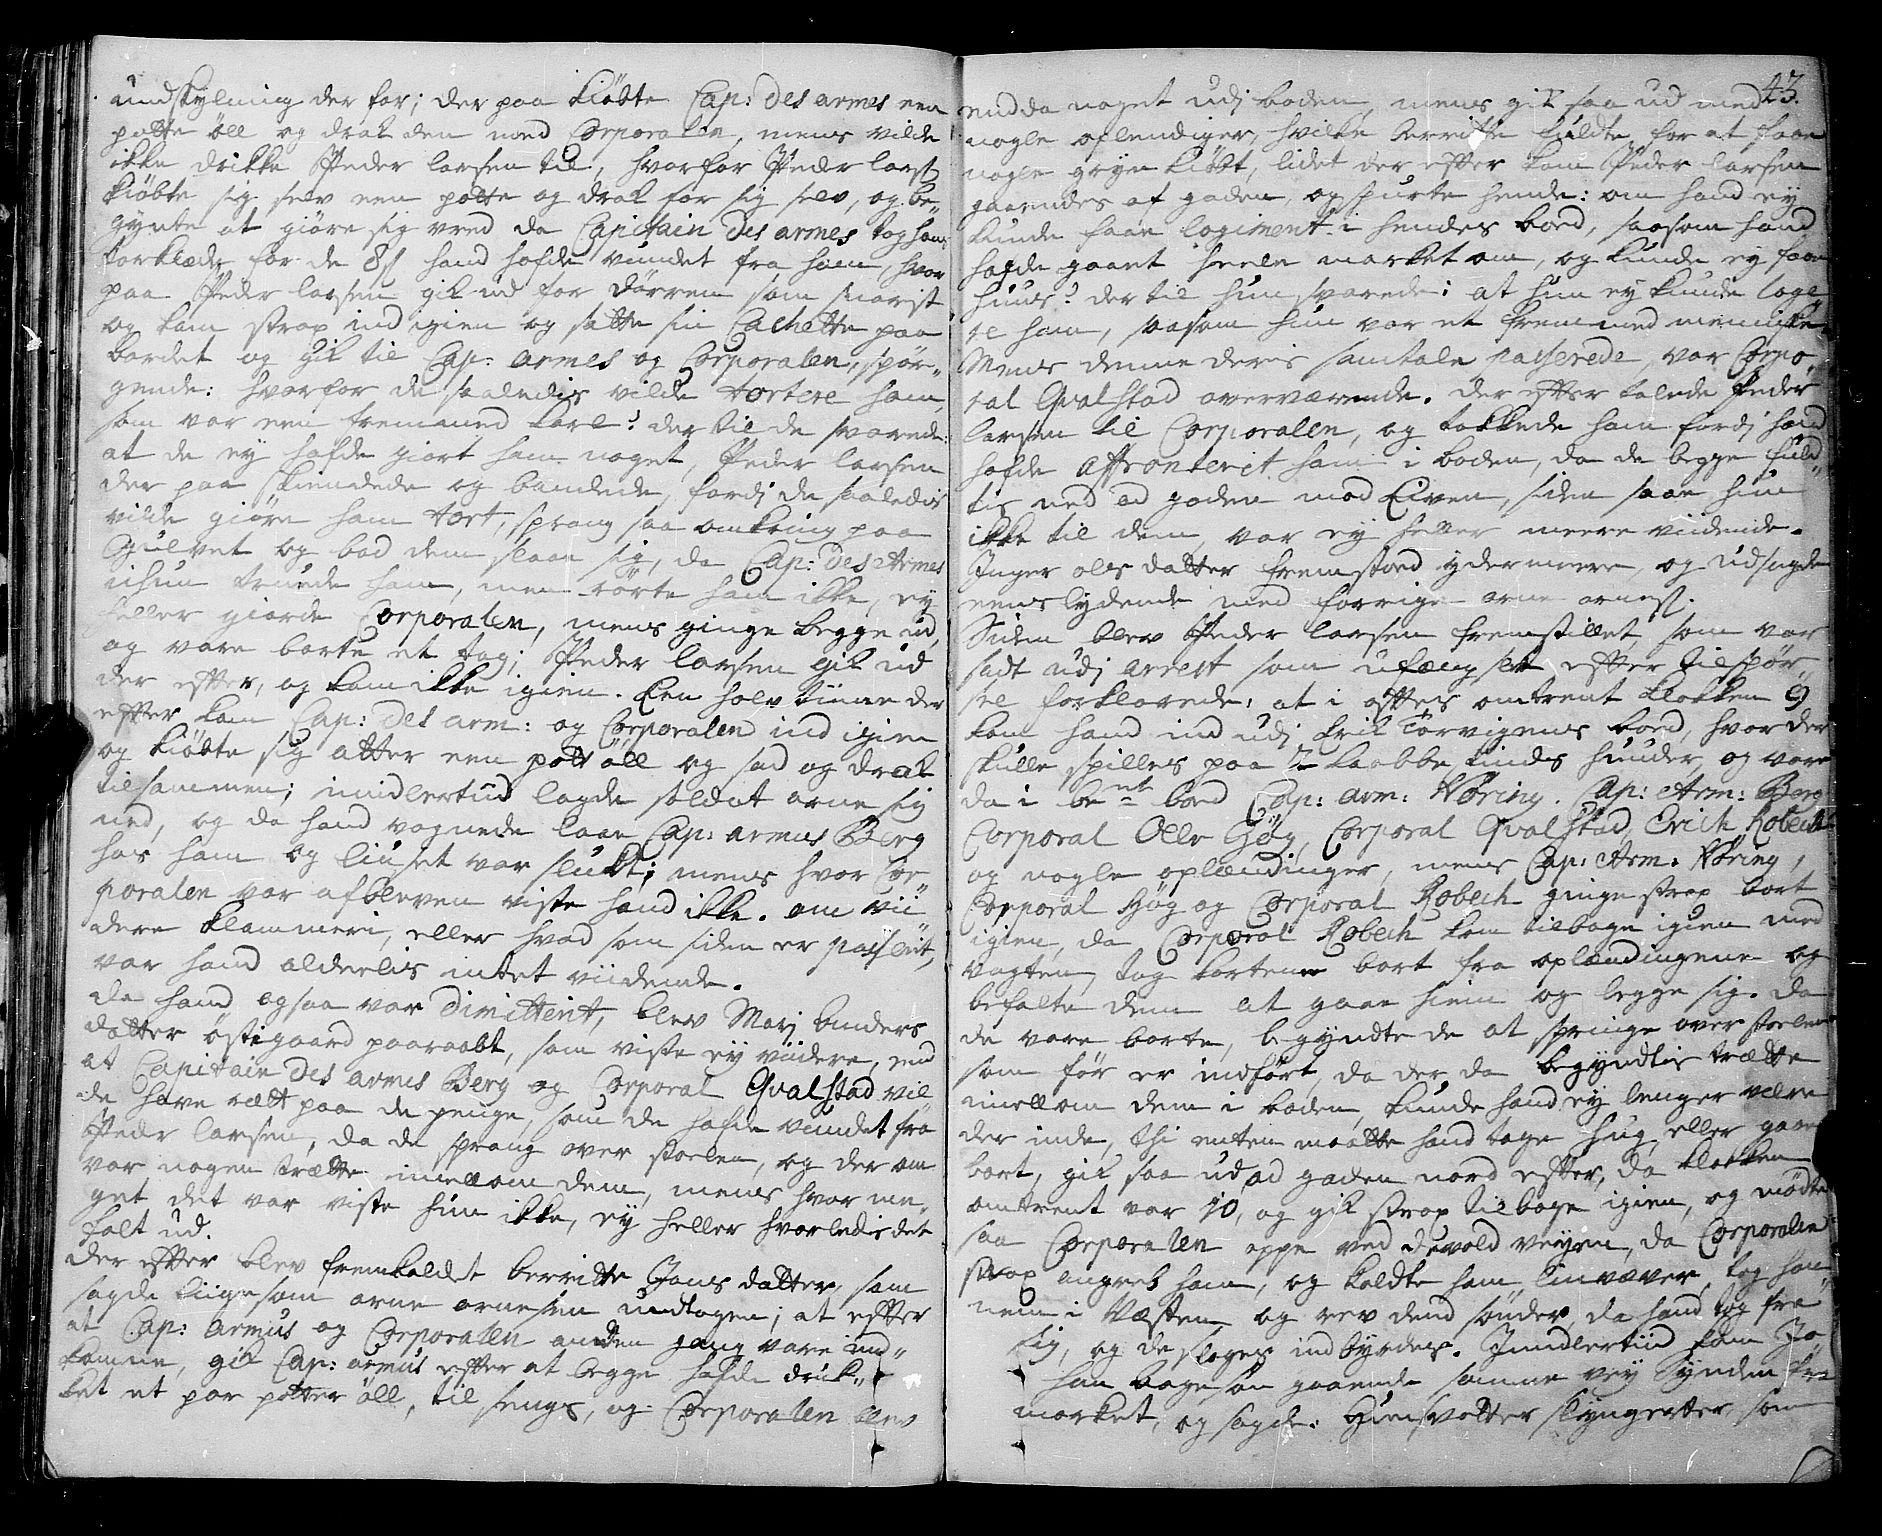 undskylning der for; der paa kiöbte Cap: des armes een
potte öll og drak den med Corporalen, mens vilde
ikke drikke Peder larsen til, hvorfor Peder lars:
kiöbte sig selv een potte og drak for sig selv, og be„
gynte at giöre sig vred da Capitain des armes tog hans
torklæde for de 8 s hand hafde vundet fra ham, hvor
paa Peder larsen gik ud for dörren som snarist
og kom strax ind igien og satte sin Cachette paa
bordet og gik til Cap: armes og Corporalen, spör„
gende: hvorfor de saaledis vilde tortere ham,
som var een fremmed karl? der til de svarede:
at de ey hafde giort ham noget, Peder larsen
der paa skiendede og bandede, fordj de saaledis
vilde giöre ham tort, sprang saa omkring paa
Gulvet og bad dem slaae sig, da Cap: des Armes
ichun truede ham, men rörte ham ikke, ey
heller giorde Corporalen, mens ginge begge ud,
og vare borte et tag; Peder larsen gik ud
der efter, og kom ikke igien. Een halv tiime der
efter kom Cap: des arm: og Corporalen ind igien
og kiöbte sig atter een pott öll og sad og drak
tilsammen; imidlertiid lagde soldat arne sig
ned, og da hand vognede laae Cap: armus Berg
hos ham og liuset var slukt; mens hvor Cor
poralen var afbleven viste hand ikke. om vii
dere klammeri, eller hvad som siden er passerit,
var hand alderlis intet viidende.
da hand ogsaa var dimitterit, blev Marj Anders
datter östigaard paaraabt, som viste ey viidere, end
at Capitain des armes Berg og Corporal Qvalstad vil
de have rætt paa de penge, som de hafde vundet fra
Peder larsen, da de sprang over stoelen, og der om
var nogen trætte imellom dem, mens hvor me„
get det var viste hun ikke, ey heller hvorledis det
falt ud.
der efter blev fremkaldet berritte Jons datter, som
sagde liigesom arne arnesen undtagen; at efter
at Cap: armus og Corporalen anden gang vare ind„
komne, gik Cap: armus efter at begge hafde druk„
ket et par potter öll, til sengs, og Corporalen blev
43.
endda noget udj boden, mens gik saa ud med
nogle oplendinger, hvilke berritte fuldte, for at faae
nogle gryn kiöbt, lidet der efter kom Peder larsen
gaaendes af gaden, og spurte hende: om hand ey
kunde faae logiment i hendes boed, saasom hand
hafde gaaet heele market om, og kunde ey faae
huus? der til hun svarede: at hun ey kunde loge„
re ham, saasom hun var et fremmed menniske.
Mens denne deris samtale passerede, var Corpo„
ral Qvalstad overværende. der efter talede Peder
larsen til Corporalen, og takkede ham fordj hand
hafde affronterit ham i boden, da de begge fuld„
tis ned ad gaden mod Elven, siden saae hun
ikke til dem, var ey heller meere viidende.
Inger ols datter fremstoed ydermeere, og udsagde
eenslydende med forrige arne arnes:
Siden blev Peder larsen fremstillet som var
sadt udj arrest som ufængslet efter tilspör„
sel forklarede: at i aftes omtrent klokken 9
kom hand ind udj Erik Törvigens boed, hvor der
skulle spilles paa 2 kaabbe kinds huuder, og vare
da i be^nte boed Cap: arm: Nöring. Cap: Arm: Berg
Corporal Olle Hög, Corporal Qvalstad, Erich Robech
og nogle oplændinger, mens Cap: Arm: Nöring,
Corporal Hög og Corporal Robech ginge strax bort
igien, da Corporal Robech kom tilbage igien med
vagten, tog kortene bort fra oplændingene og
befalte dem at gaae hiem og legge sig. da
de vare borte, begyndte de at springe over stoelen
som för er indfört, da der da begyndtis trætte
imellom dem i boden, kunde hand ey lenger være
der inde, thi enten maatte hand tage hug eller gaae
bort, gik saa ud ad gaden nord efter, da klokken
omtrent var 10, og gik strax tilbage igien, og mödte
saa Corporalen oppe ved devold veyen, da Corporalen
strax angreb ham, og kaldte ham linvæver, tog ham
nem i Væsten og rev dend sönder, da hand tog fra
sig, og de sloges indbyrdes. Imidlertiid kom Jo„
han bagesön gaaende samme vey Synden fra
market, og sagde: Hiensvotter slyngeatter, som